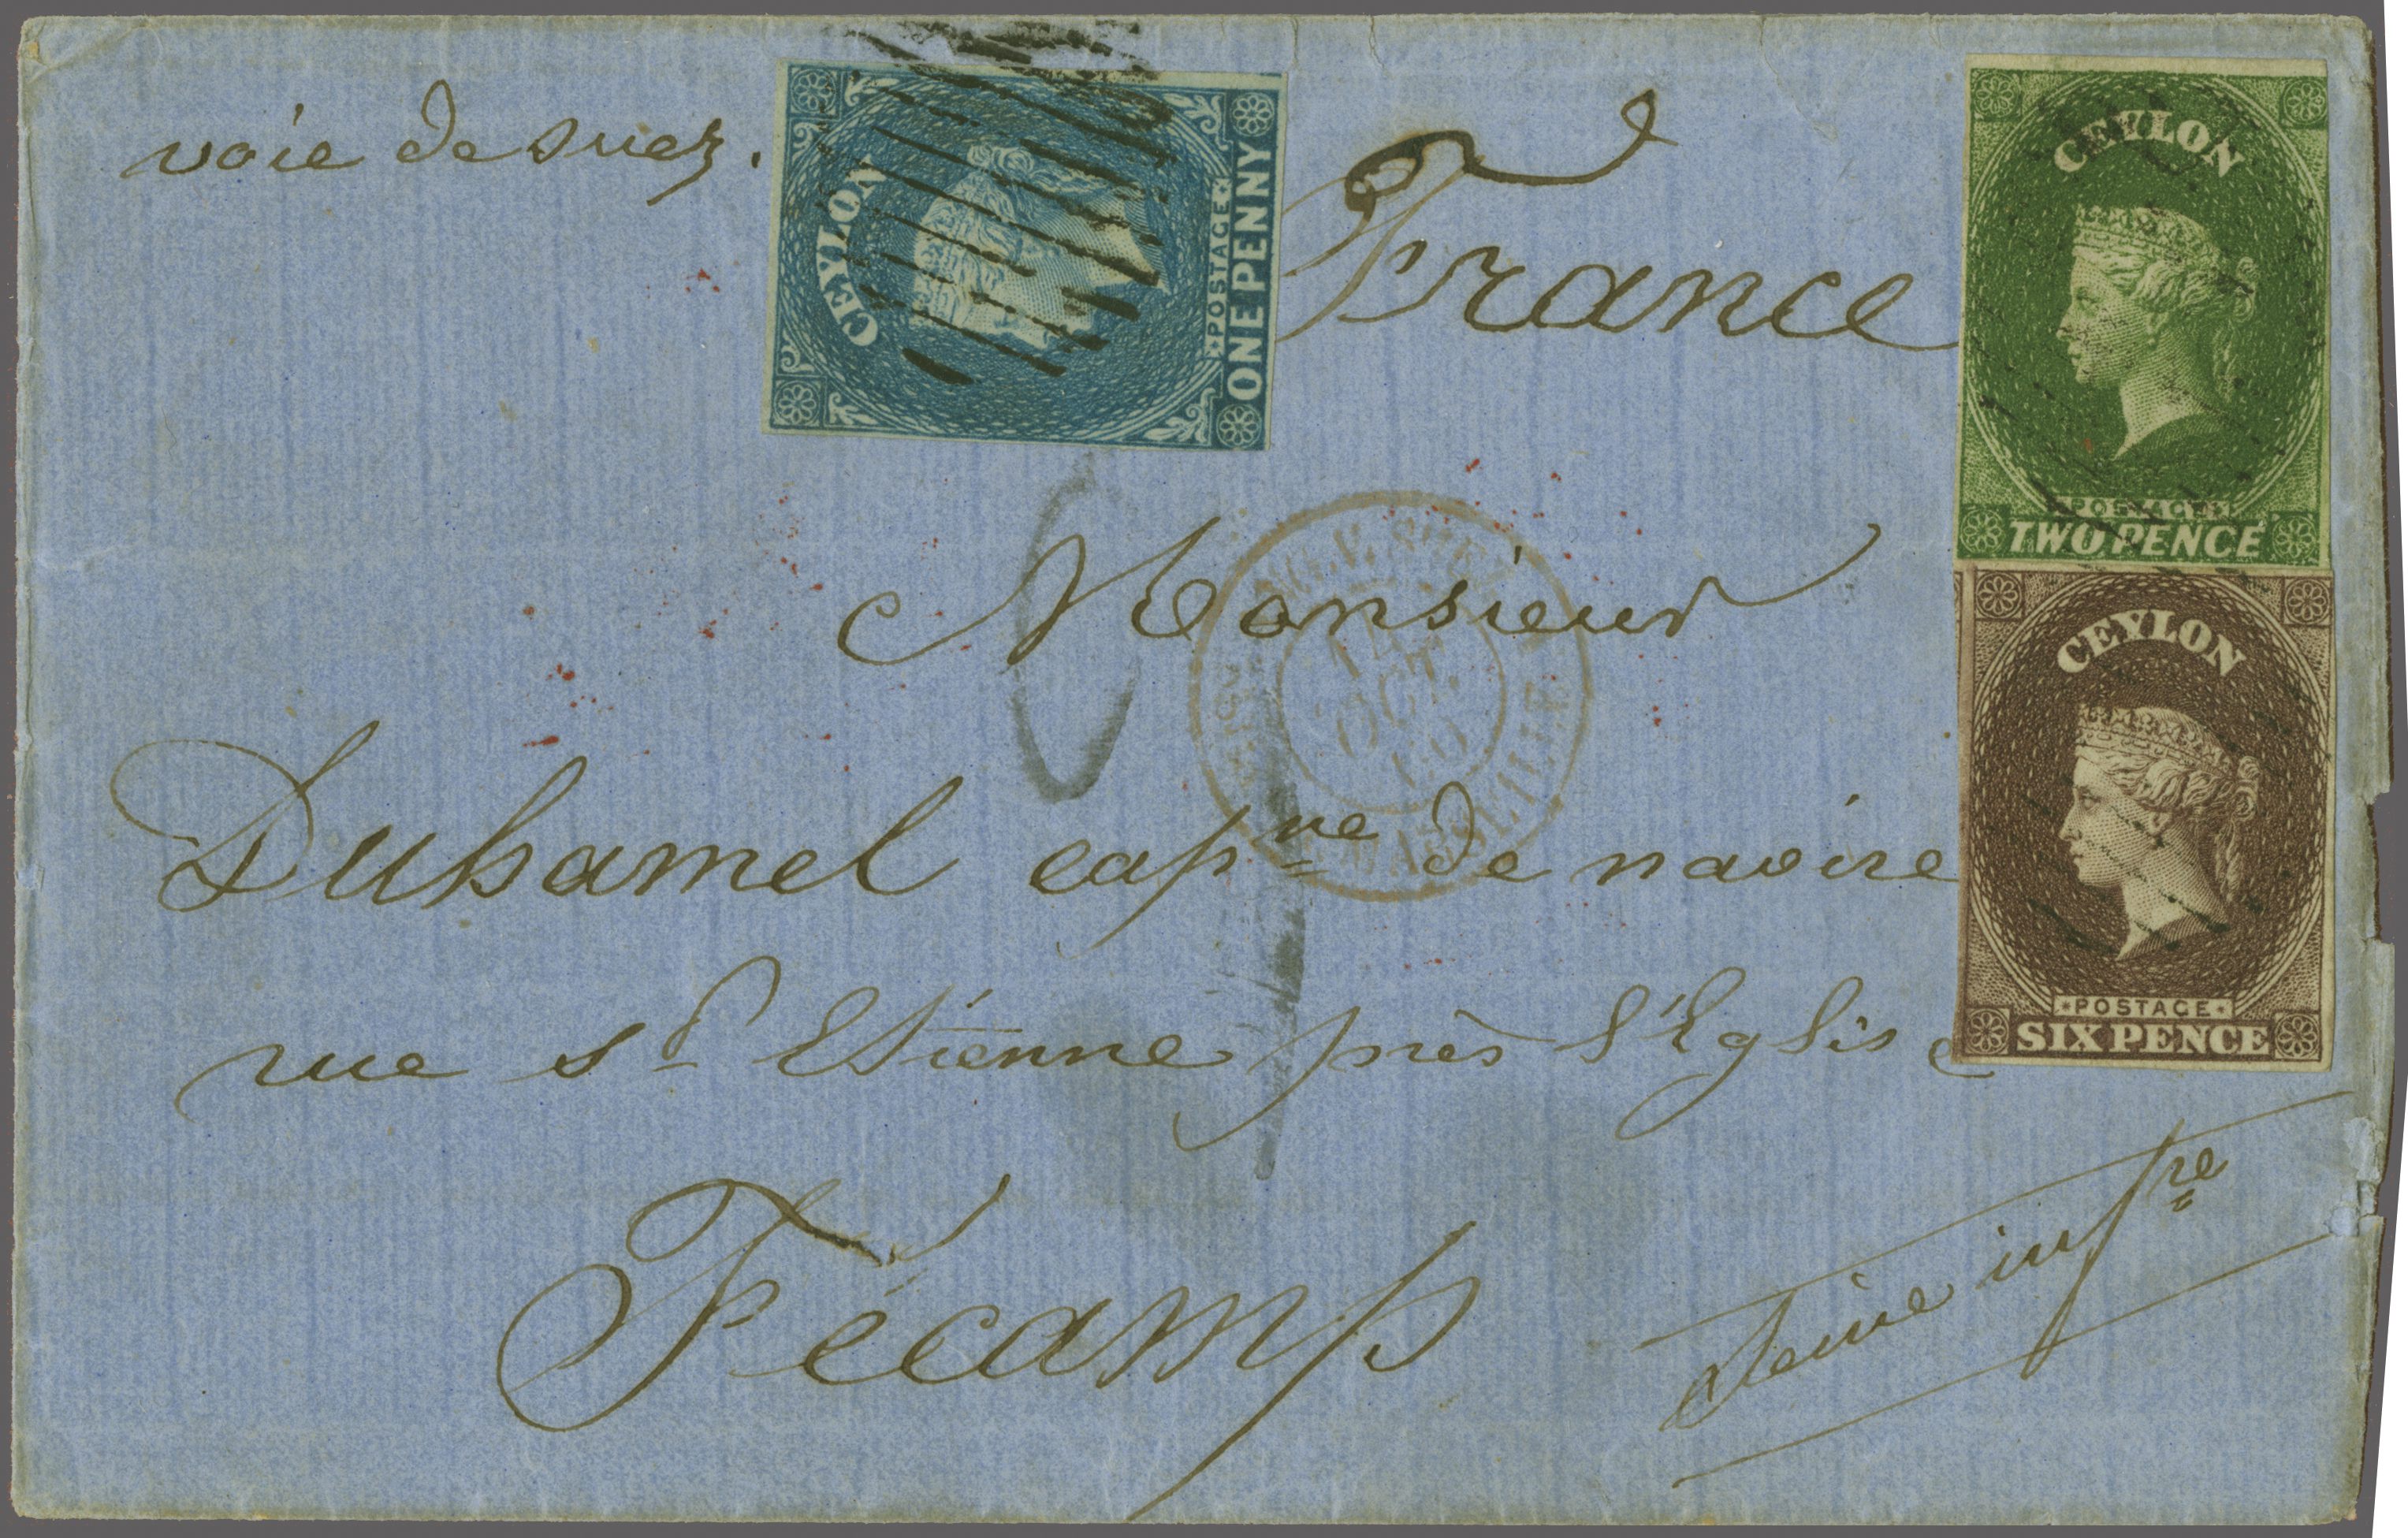 voie de suez.
France
CEYLON
POSTAGE
ONE PENNY
CEYLON
POSTAGE
TWO PENCE
CEYLON
POSTAGE
SIX PENCE
14
OCT.
60
MARSEILLE
Monsieur
Duhamel capne de navire
rue st Etienne près l'Eglise
Fécamp
Seine infre